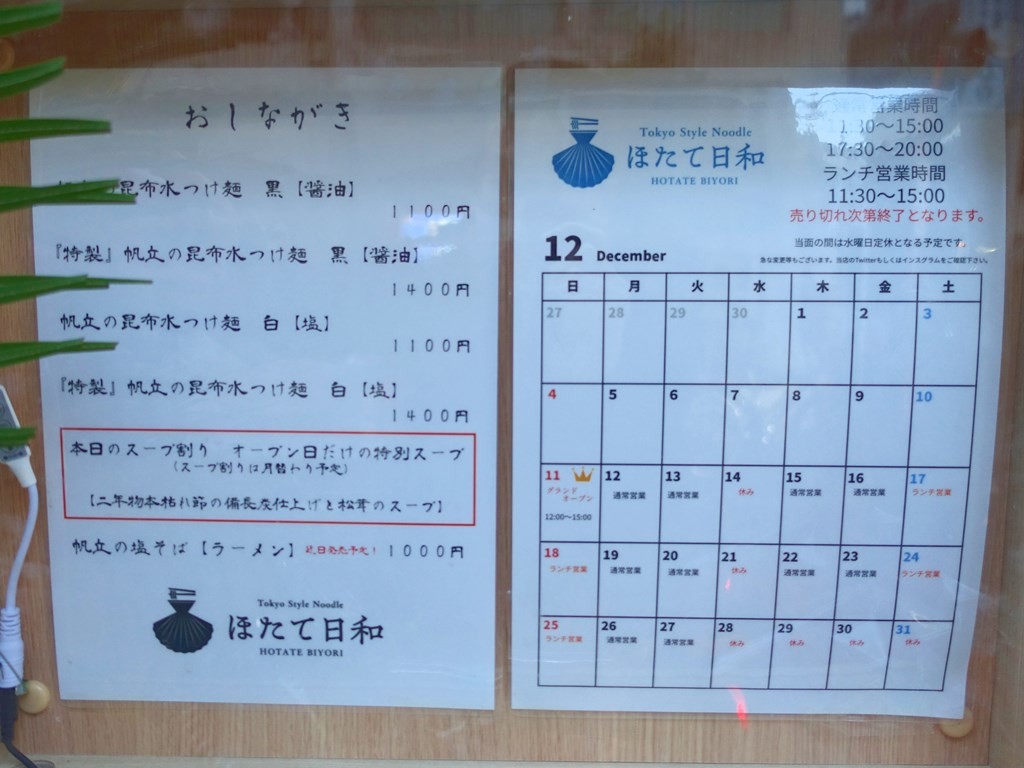 おしながき
昆布水つけ麺 黒【醤油】
1100円
『特製』帆立の昆布水つけ麺 黒【醤油】
1400円
帆立の昆布水つけ麺 白【塩】
1100円
『特製』帆立の昆布水つけ麺 白【塩】
1400円
本日のスープ割り オープン日だけの特別スープ
(スープ割りは月替わり予定)
【二年物本枯れ節の備長炭仕上げと松茸のスープ】
帆立の塩そば【ラーメン】近日発売予定! 1000円
Tokyo Style Noodle
ほたて日和
HOTATE BIYORI
Tokyo Style Noodle
ほたて日和
HOTATE BIYORI
営業時間
11:30〜15:00
17:30〜20:00
ランチ営業時間
11:30〜15:00
売り切れ次第終了となります。
当面の間は水曜日定休となる予定です。
急な変更等もございます。当店のTwitterもしくはインスタグラムをご確認下さい。
12 December
日 月 火 水 木 金 土
27 28 29 30 1 2 3
4 5 6 7 8 9 10
11 12 13 14 15 16 17
グランドオープン 通常営業 通常営業 休み 通常営業 通常営業 ランチ営業
12:00〜15:00
18 19 20 21 22 23 24
ランチ営業 通常営業 通常営業 休み 通常営業 通常営業 ランチ営業
25 26 27 28 29 30 31
ランチ営業 通常営業 通常営業 休み 休み 休み 休み